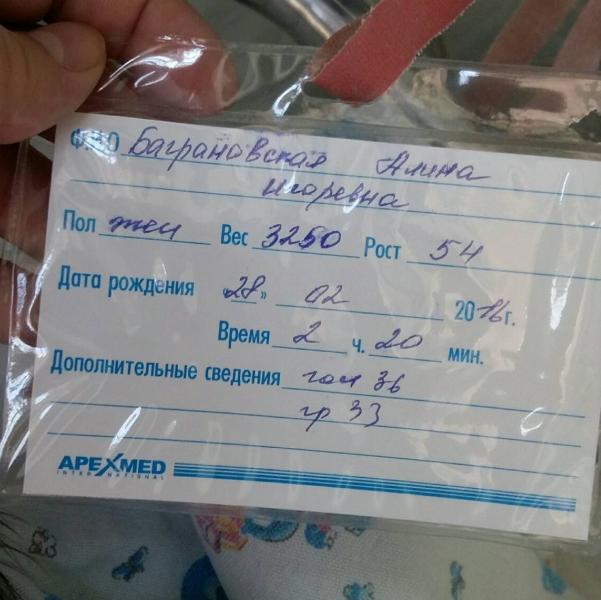 ФИО Баграновская Алина
Игоревна
Пол жен Вес 3250 Рост 54
Дата рождения «28» 02 2016г.
Время 2 ч. 20 мин.
Дополнительные сведения гол 36
гр 33
APEXMED
INTERNATIONAL